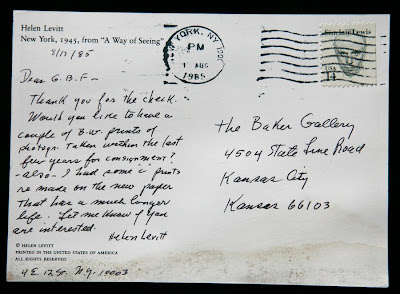 Helen Levitt
New York, 1945, from "A Way of Seeing"
8/17/85
Dear G.B.F–
Thank you for the check.
Would you like to have a
couple of B.W prints of
photogr. taken within the last
few years for consignment?
–also– I had some c prints
re made on the new paper
that has a much longer
life. Let me know if you
are interested.
Helen Levitt
© HELEN LEVITT
PRINTED IN THE UNITED STATES OF AMERICA
ALL RIGHTS RESERVED
4 E. 12 St. N.Y. 10003
NEW YORK, NY
PM
AUG
1985
Sinclair Lewis
USA
14
The Baker Gallery
4504 State Line Road
Kansas City
Kansas 66103